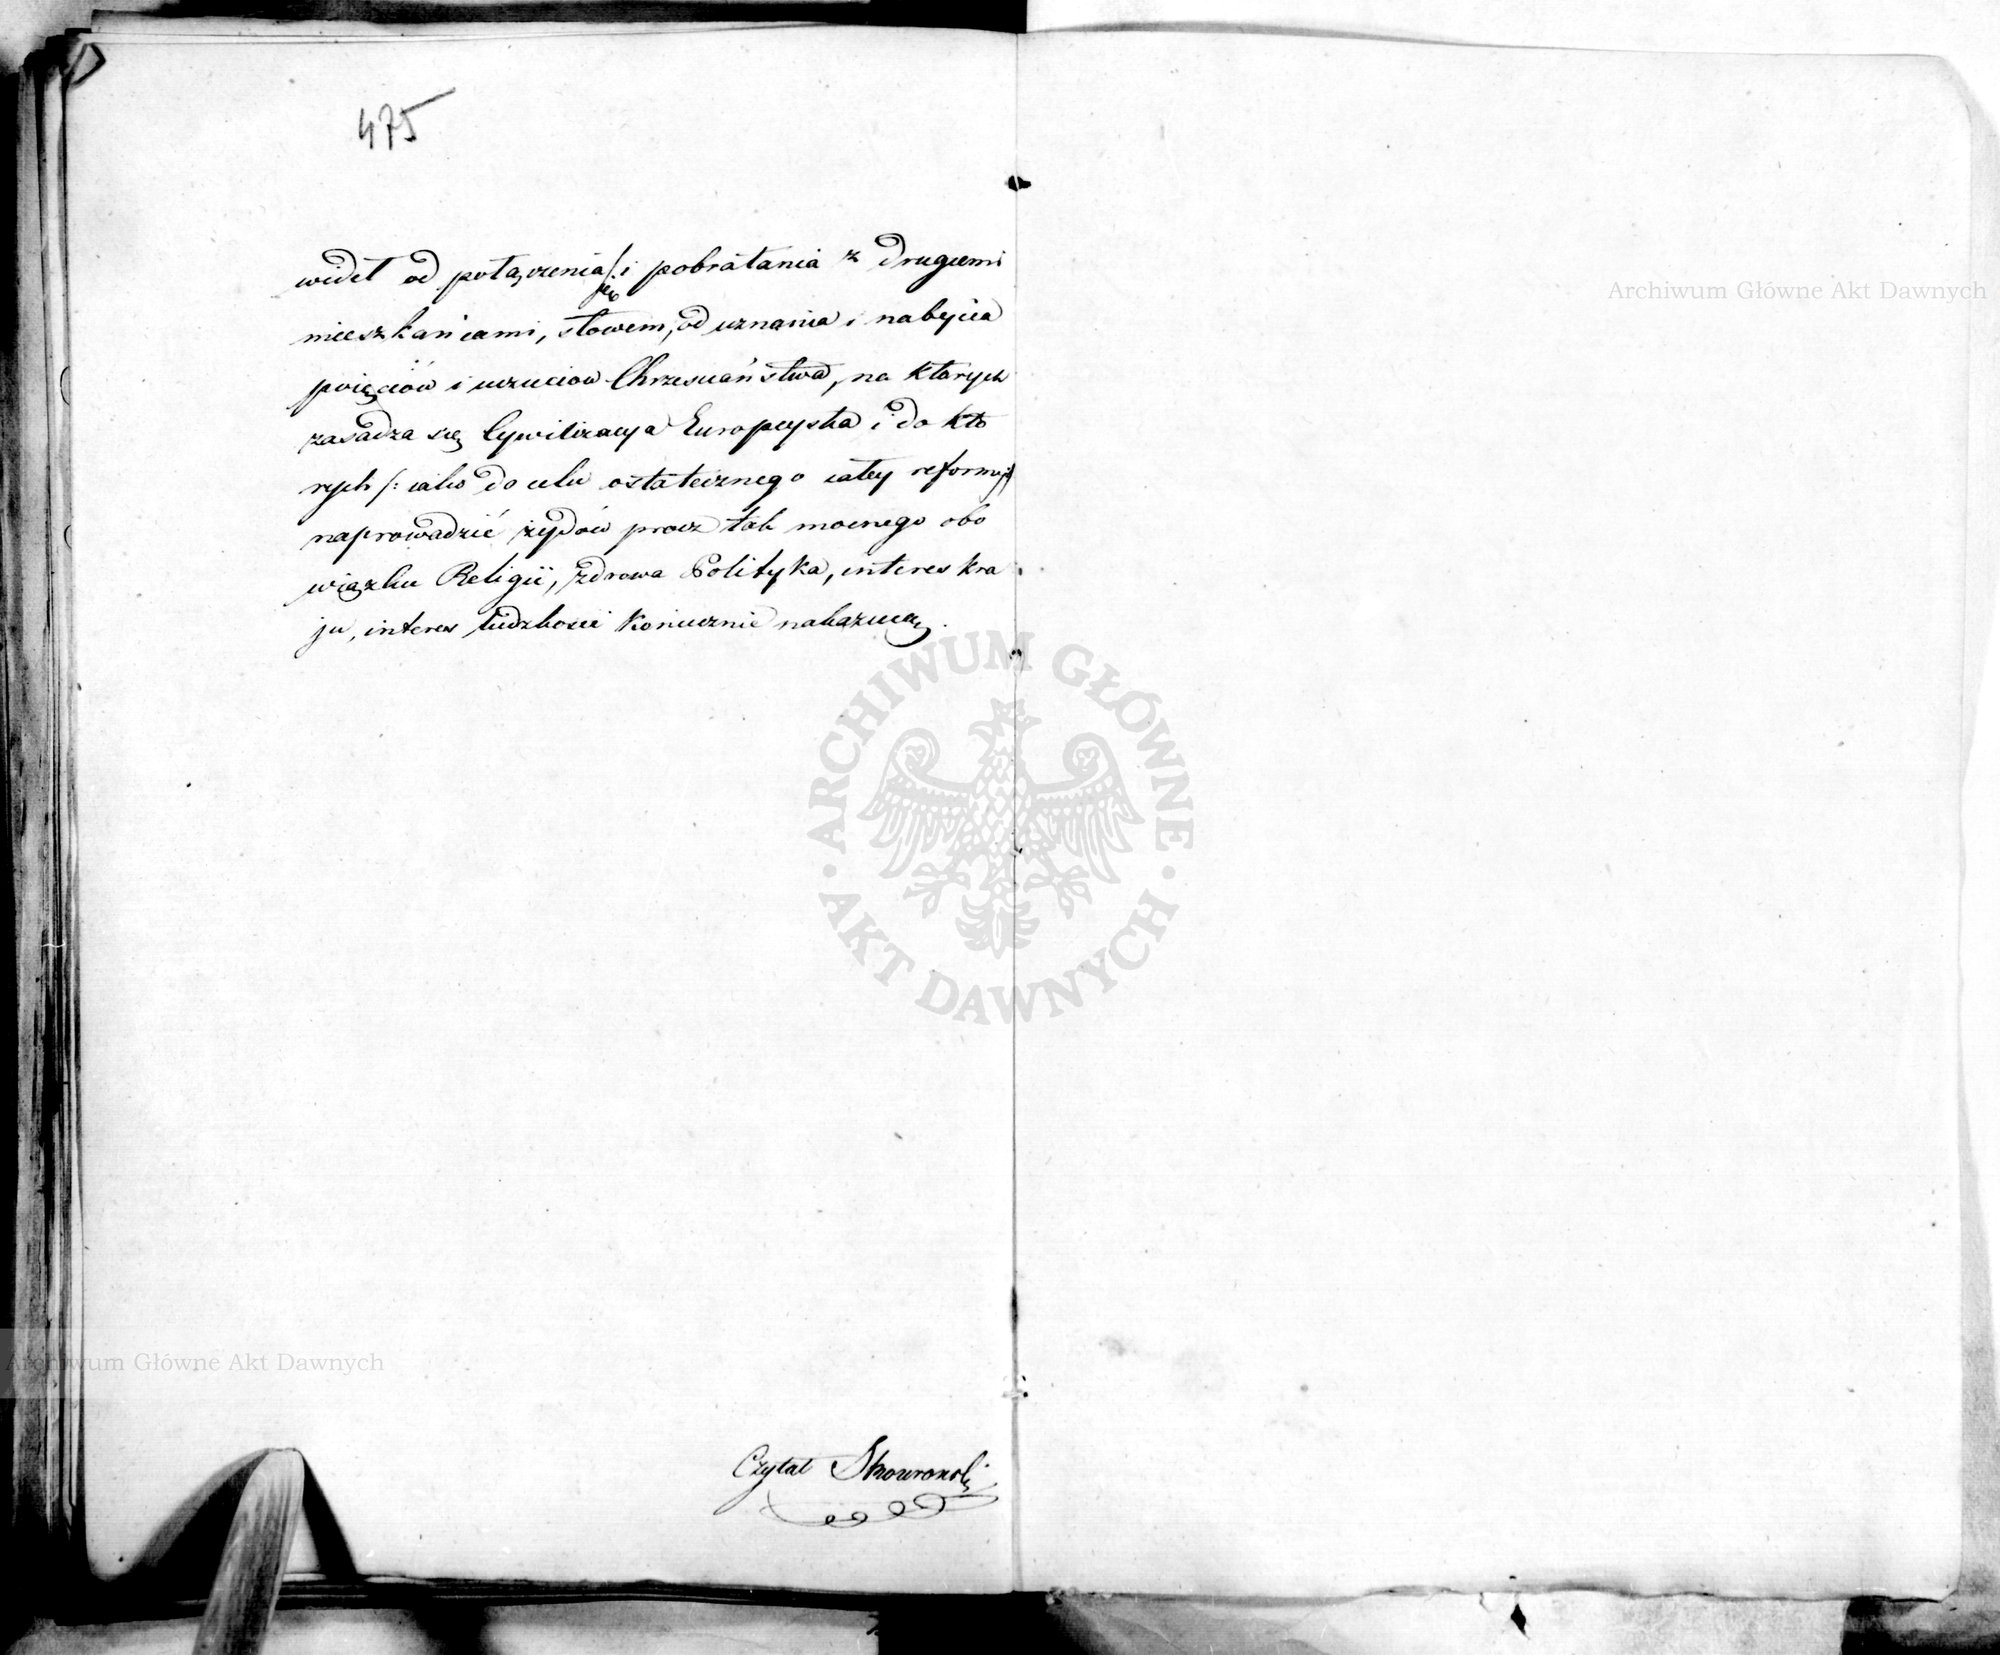 475
widet od połączenia się i pobratania z drugiemi
mieszkańcami, słowem, od uznania i nabycia
poięciów i uczuciow Chrzesciaństwa, na których
zasadza się Cywilizacya Europeyska i do któ
rych /: iako do celu ostatecznego całey reformy :/
naprowadzić żydów procz tak mocnego obo
wiązku Religii, zdrowa Polityka, interes kra
ju, interes ludzkości koniecznie nakazuią.
Czytał Skowronski
Archiwum Główne Akt Dawnych
ARCHIWUM GŁÓWNE AKT DAWNYCH
Archiwum Główne Akt Dawnych